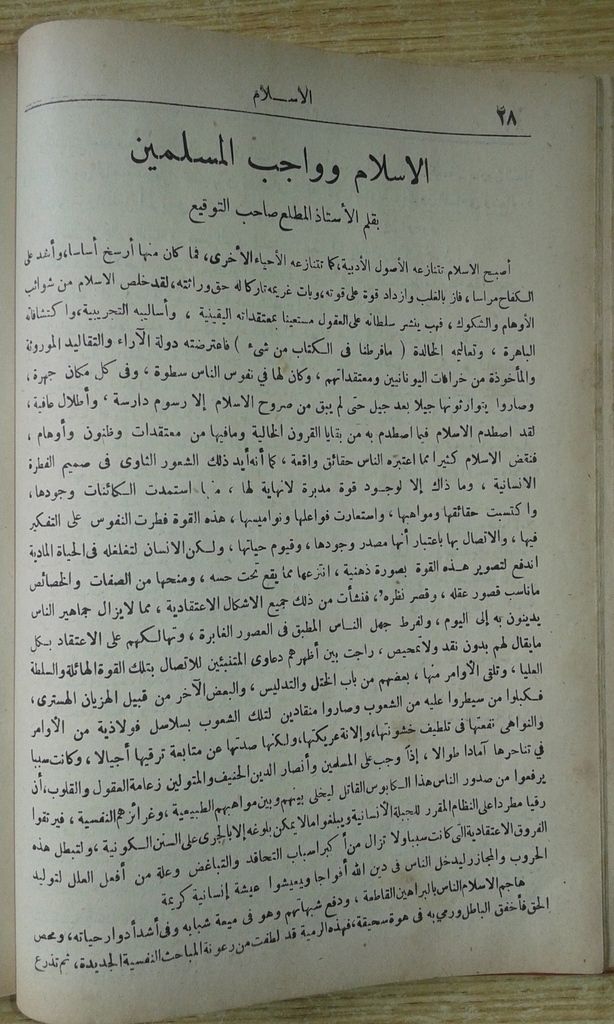 ٢٨
الاســلام
الاسلام وواجب المسلمين
بقلم الأستاذ المطلع صاحب التوقيع
أصبح الاسلام تتنازعه الأصول الأدبية، كما تتنازعه الأحياء الأخرى، فما كان منها أرسخ أساسا، وأشد على
الكفاح مراسا، فاز بالغلب وازداد قوة على قوته، وبات غريمه تاركا له حق وراثته، لقد خلص الاسلام من شوائب
الأوهام والشكوك، فهب ينشر سلطانه على العقول مستعينا بمعتقداته اليقينية، وأساليبه التجريبية، واكتشافاته
الباهرة، وتعاليمه الخالدة ( مافرطنا فى الكتاب من شىء ) فاعترضته دولة الآراء والتقاليد الموروثة
والمأخوذة من خرافات اليونانيين ومعتقداتهم، وكان لها فى نفوس الناس سطوة، وفى كل مكان جمهرة،
وصاروا يتوارثونها جيلا بعد جيل حتى لم يبق من صروح الاسلام إلا رسوم دارسة، وأطلال عافية،
لقد اصطدم الاسلام فيما اصطدم به من بقايا القرون الخالية ومافيها من معتقدات وظنون وأوهام،
فنقض الاسلام كثيرا مما اعتبره الناس حقائق واقعة، كما أنه أيد ذلك الشعور الثاوى فى صميم الفطرة
الانسانية، وما ذاك إلا لوجود قوة مدبرة لانهاية لها، منها استمدت الكائنات وجودها،
واكتسبت حقائقها ومواهبها، واستعارت فواعلها ونواميسها، هذه القوة فطرت النفوس على التفكير
فيها، والاتصال بها باعتبار أنها مصدر وجودها، وقيوم حياتها، ولكن الانسان لتغلغله فى الحياة المادية
اندفع لتصوير هذه القوة بصورة ذهنية، انتزعها مما يقع تحت حسه، ومنحها من الصفات والخصائص
ماناسب قصور عقله، وقصر نظره، فنشأت من ذلك جميع الاشكال الاعتقادية، مما لايزال جماهير الناس
يدينون به إلى اليوم، ولفرط جهل الناس المطبق فى العصور الغابرة، وتهالكهم على الاعتقاد بكل
مايقال لهم بدون نقد ولا تمحيص، راجت بين أظهرهم دعاوى المتنبئين للاتصال بتلك القوة الهائلة والسلطة
العليا، وتلقى الأوامر منها، بعضهم من باب الختل والتدليس، والبعض الآخر من قبيل الهزيان الهسترى،
فكبلوا من سيطروا عليه من الشعوب وصاروا منقادين لتلك الشعوب بسلاسل فولاذية من الأوامر
والنواهى نفعتها فى تلطيف خشونتها، وإلانة عريكتها، ولكنها صدتها عن متابعة ترقيها أجيالا، وكانت سببا
فى تناحرها آمادا طوالا، إذاً وجب على المسلمين وأنصار الدين الحنيف والمتولين زعامة العقول والقلوب، أن
يرفعوا من صدور الناس هذا الكابوس القاتل ليخلى بينهم وبين مواهبهم الطبيعية، وغرائزهم النفسية، فيرتقوا
رقيا مطردا على النظام المقرر للجبلة الأنسانية ويبلغوا مالا يمكن بلوغه إلا بالجرى على السنن الكونية، ولتبطل هذه
الفروق الاعتقادية التى كانت سببا ولا تزال من أكبر أسباب التحاقد والتباغض وعلة من أفعل العلل لتوليد
الحروب والمجازر ليدخل الناس فى دين الله أفواجا ويعيشوا عيشة إنسانية كريمة
هاجم الاسلام الناس بالبراهين القاطعة، ودفع شبهاتهم وهو فى ميعة شبابه وفى أشد أدوار حياته، ومحص
الحق فأخفق الباطل ورمى به فى هوة سحيقة، فهذه الرمية قد لطفت من رعونة المباحث النفسية الجديدة، ثم تذرع